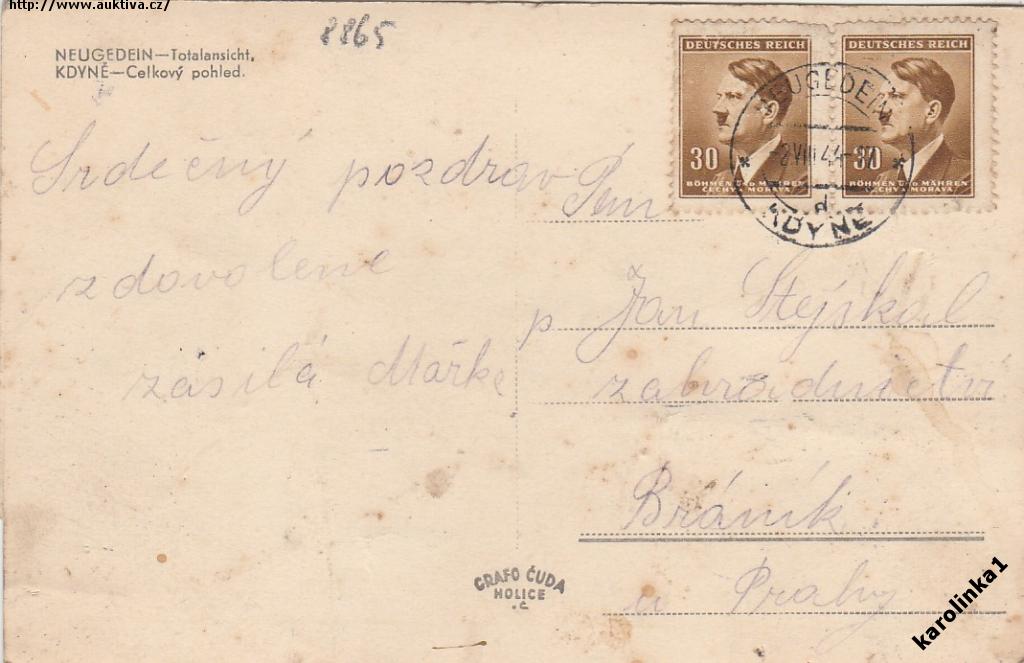 http://www.auktiva.cz/
8865
NEUGEDEIN—Totalansicht.
KDYNĚ—Celkový pohled.
DEUTSCHES REICH
30
BÖHMEN UND MÄHREN
ČECHY A MORAVA
DEUTSCHES REICH
30
BÖHMEN UND MÄHREN
ČECHY A MORAVA
NEUGEDEIN
KDYNĚ
Srdečný pozdrav
z dovolené
zasílá
Pan
p Jan Stejskal
zahradnictví
Bráník
u Prahy
GRAFO ČUDA
HOLICE
karolinka1